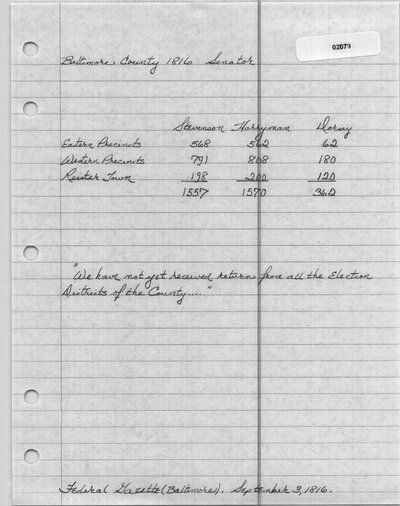 02079
Baltimore County 1816 Senator
Stevenson Harryman Dorsey
Eastern Precincts 568 562 62
Western Precincts 791 808 180
Reister Town 198 200 120
1557 1570 362
"We have not yet received returns from all the Election
Districts of the County...."
Federal Gazette (Baltimore). September 3, 1816.